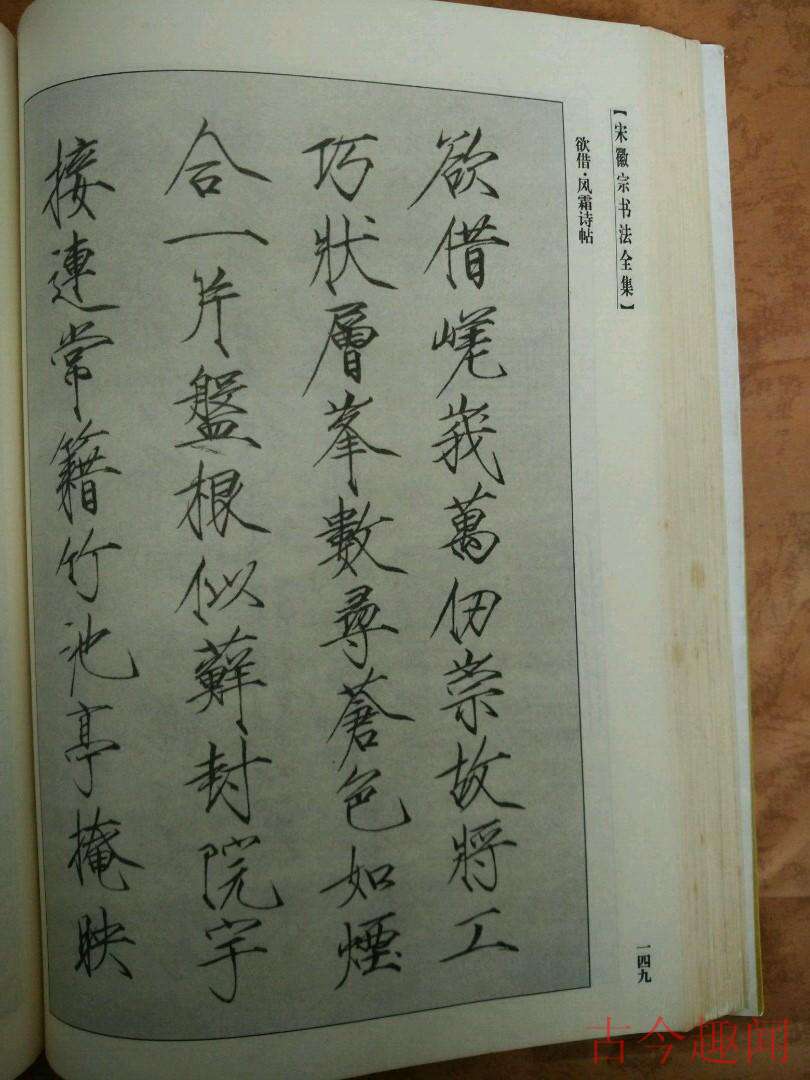 【宋徽宗书法全集】
欲借·风霜诗帖
欲借嵯峩萬仞崇故將工
巧狀層峯數尋蒼色如煙
合一片盤根似蘚封院宇
接連常籍竹池亭掩映
一四九
古今趣闻